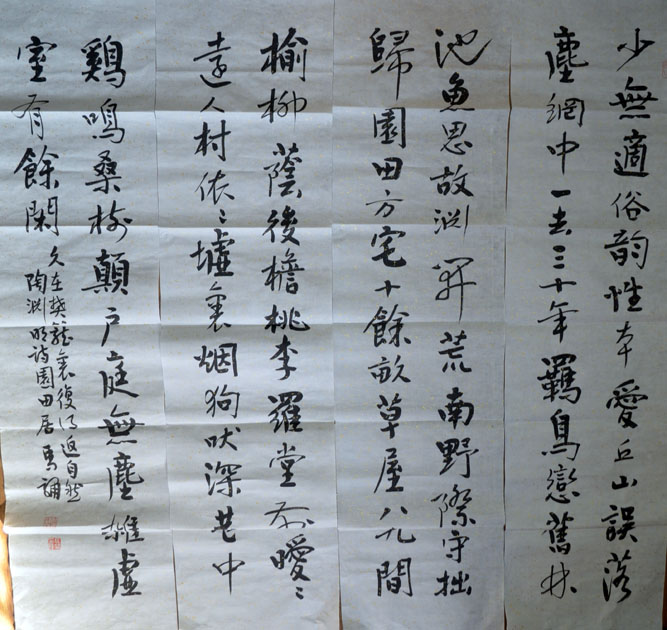 少無適俗韵性本愛丘山誤落
塵網中一去三十年羈鳥戀舊林
池魚思故渊開荒南野際守拙
歸園田方宅十餘畝草屋八九間
榆柳蔭後檐桃李羅堂前曖〻
遠人村依〻墟裏烟狗吠深巷中
鷄鳴桑樹顛户庭無塵雜虛
室有餘閑
久在樊籠裏復得返自然
陶渊明詩園田居